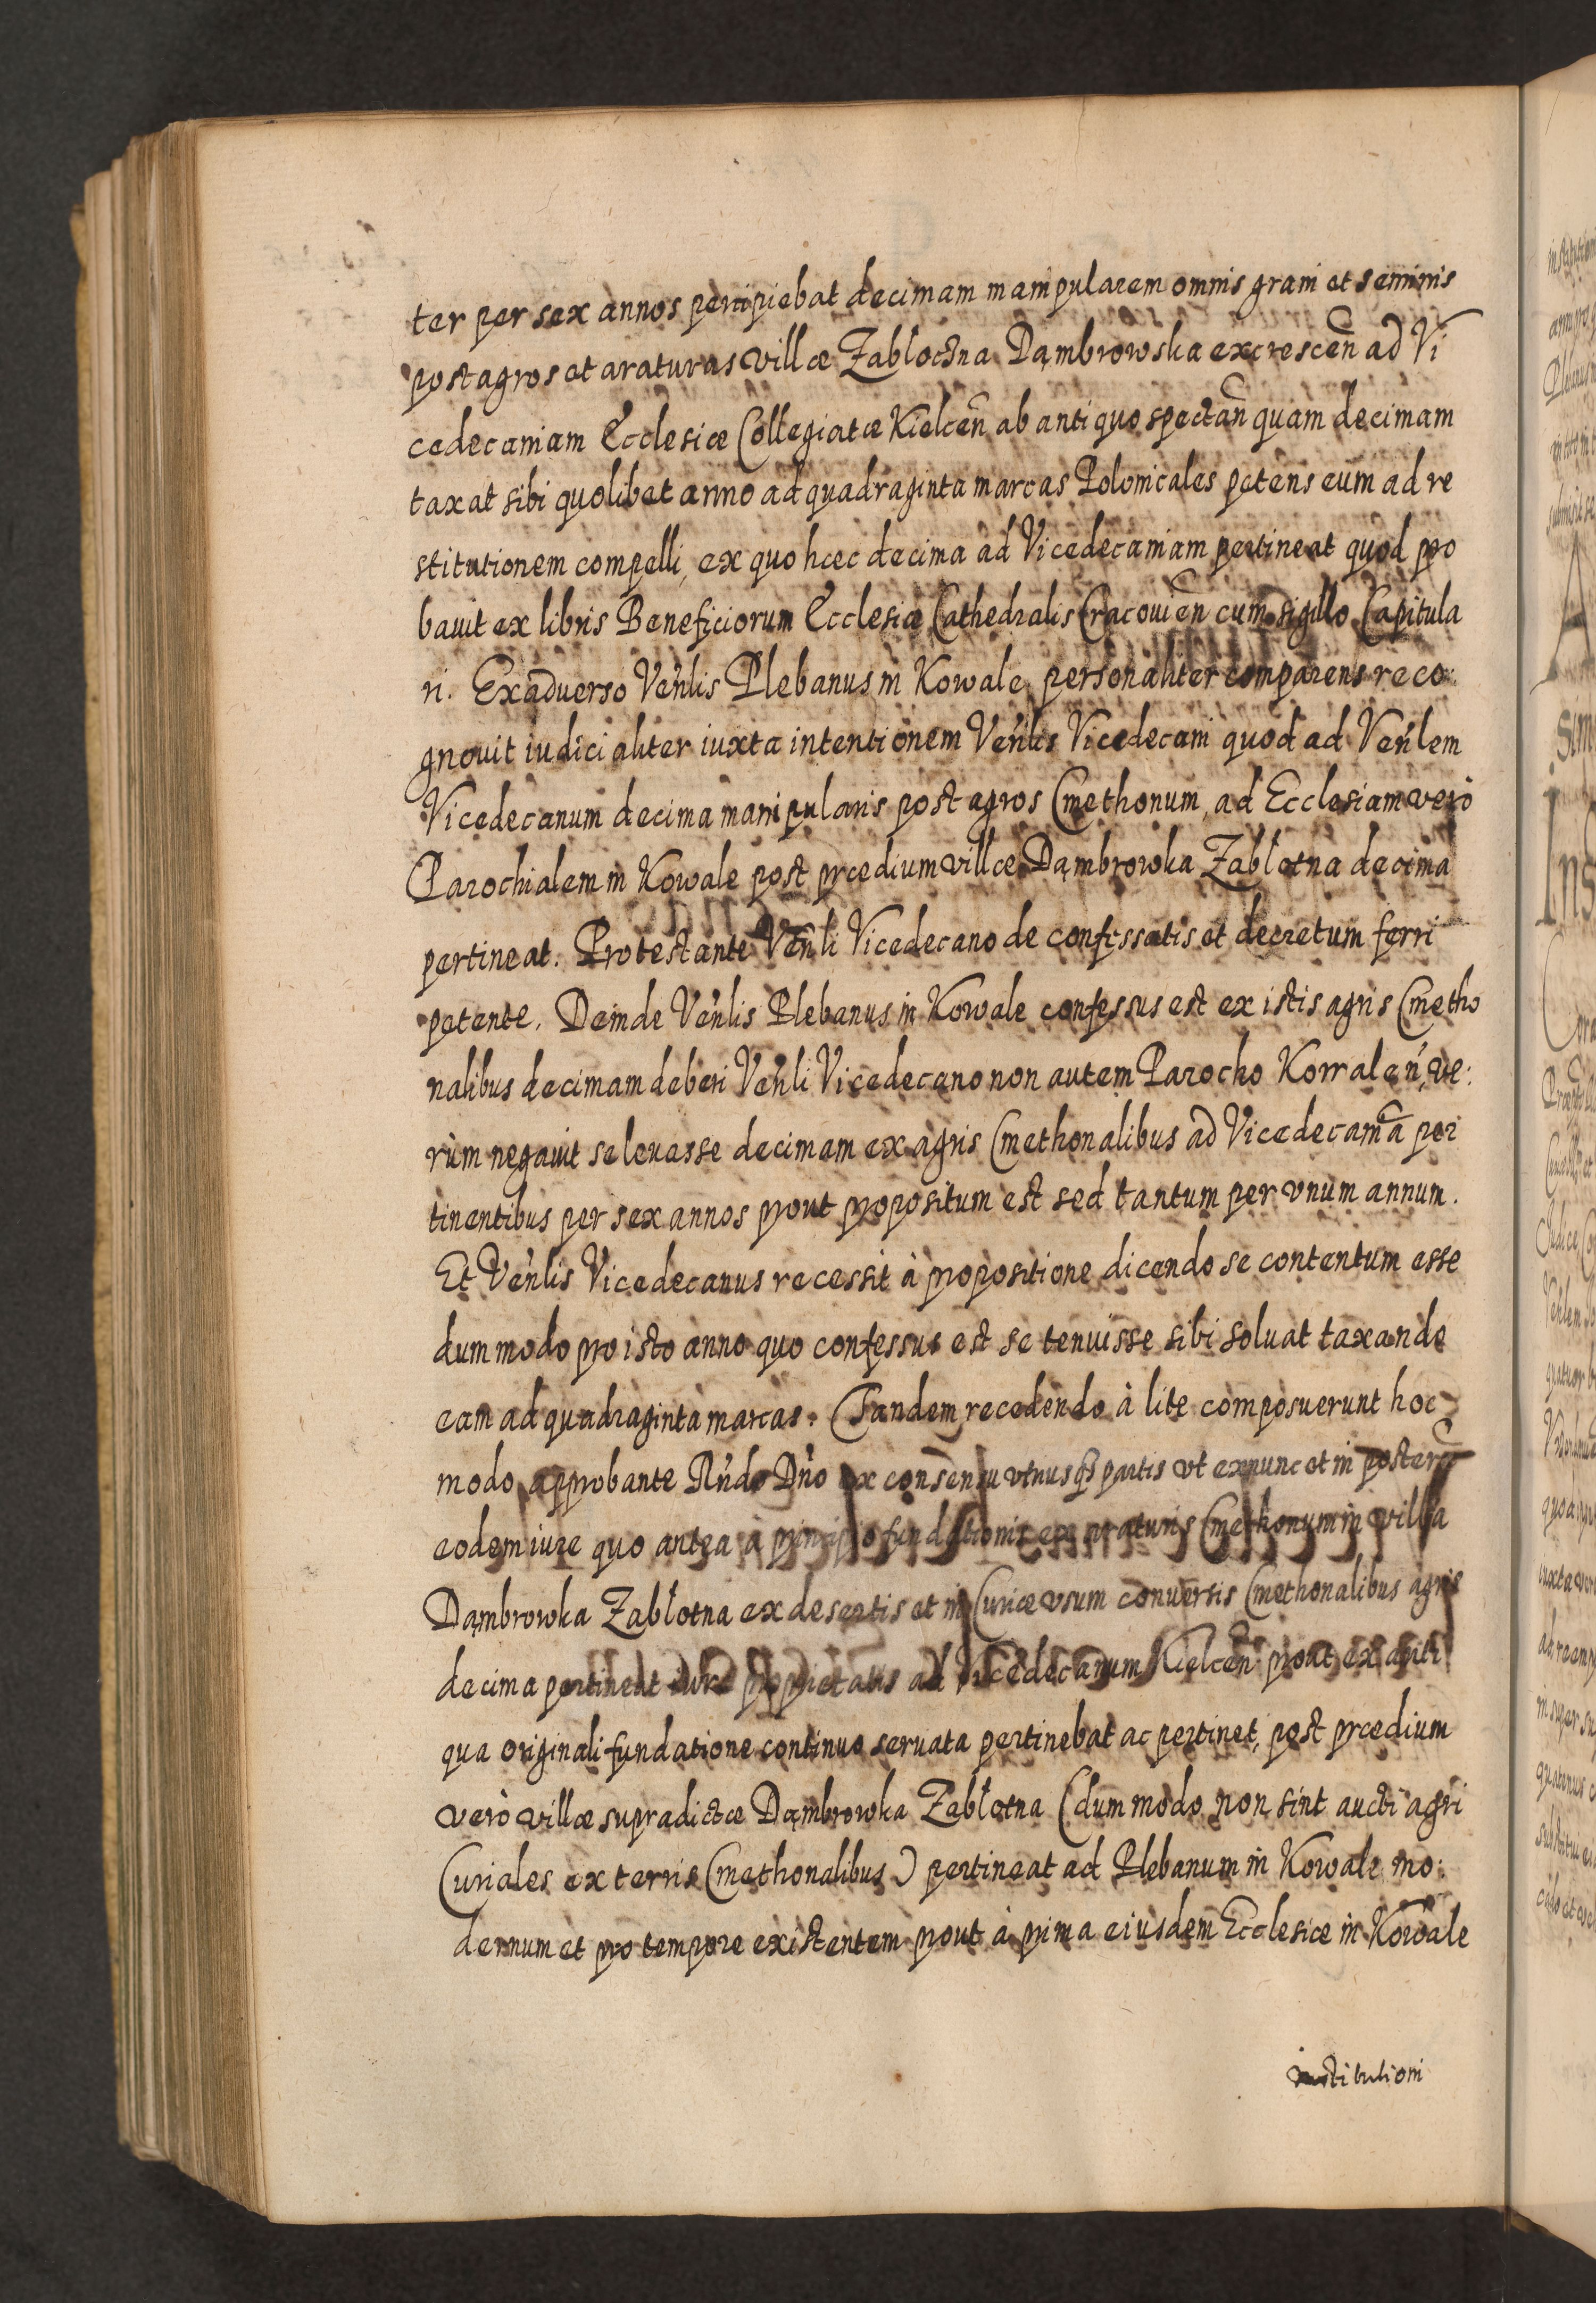 ter per sex annos percipiebat decimam manipularem omnis grani et seminis
post agros et araturas villæ Zabłoctna Dąmbrowska excrescen̄ ad Vi
cedecaniam Ecclesiæ Collegiatæ Kielcen̄ ab antiquo spectan̄ quam decimam
taxat sibi quolibet anno ad quadraginta marcas Polonicales petens eum ad re
stitutionem compelli, ex quo hæc decima ad Vicedecaniam pertineat quod pro
bauit ex libris Beneficiorum Ecclesiæ Cathedralis Cracouien̄ cum sigillo Capitula
ri. Ex aduerso Ven̄lis Plebanus in Kowale personaliter comparens reco:
gnouit iudicialiter iuxta intentionem Ven̄lis Vicedecani quod ad Ven̄lem
Vicedecanum decima manipularis post agros Cmethonum, ad Ecclesiam verò
Parochialem in Kowale post prædium villæ Dąmbrowka Zabłotna decima
pertineat. Protestante Ven̄li Vicedecano de confessatis et decretum ferri
petente. Deinde Ven̄lis Plebanus in Kowale confessus est ex istis agris Cmetho
nalibus decimam deberi Ven̄li Vicedecano non autem Parocho Kowalen̄, ve:
rùm negauit se leuasse decimam ex agris Cmethonalibus ad Vicedecaniā per
tinentibus per sex annos prout propositum est sed tantum per vnum annum.
Et Ven̄lis Vicedecanus recessit à propositione dicendo se contentum esse
dummodo pro isto anno quo confessus est se tenuisse sibi soluat taxando
eam ad quadraginta marcas. Tandem recedendo à lite composuerunt hoc
modo approbante Rn̄do Dn̄o ex consensu vtriusq́ partis vt exnunc et in posterū
eodem iure quo antea à principio fundationis ex araturis Cmethonum in villa
Dąmbrowka Zabłotna ex desertis et in Curiæ vsum conuersis Cmethonalibus agris
decima pertineat iure proprietatis ad Vicedecanum Kielcen̄ prout ex anti
qua originali fundatione continuo seruata pertinebat ac pertinet, post prædium
verò villæ supradictæ Dąmbrowka Zabłotna (dummodo non sint aucti agri
Curiales ex terris Cmethonalibus) pertineat ad Plebanum in Kowale mo:
dernum et pro tempore existentem prout à prima eiusdem Ecclesiæ in Kowale
institutioni